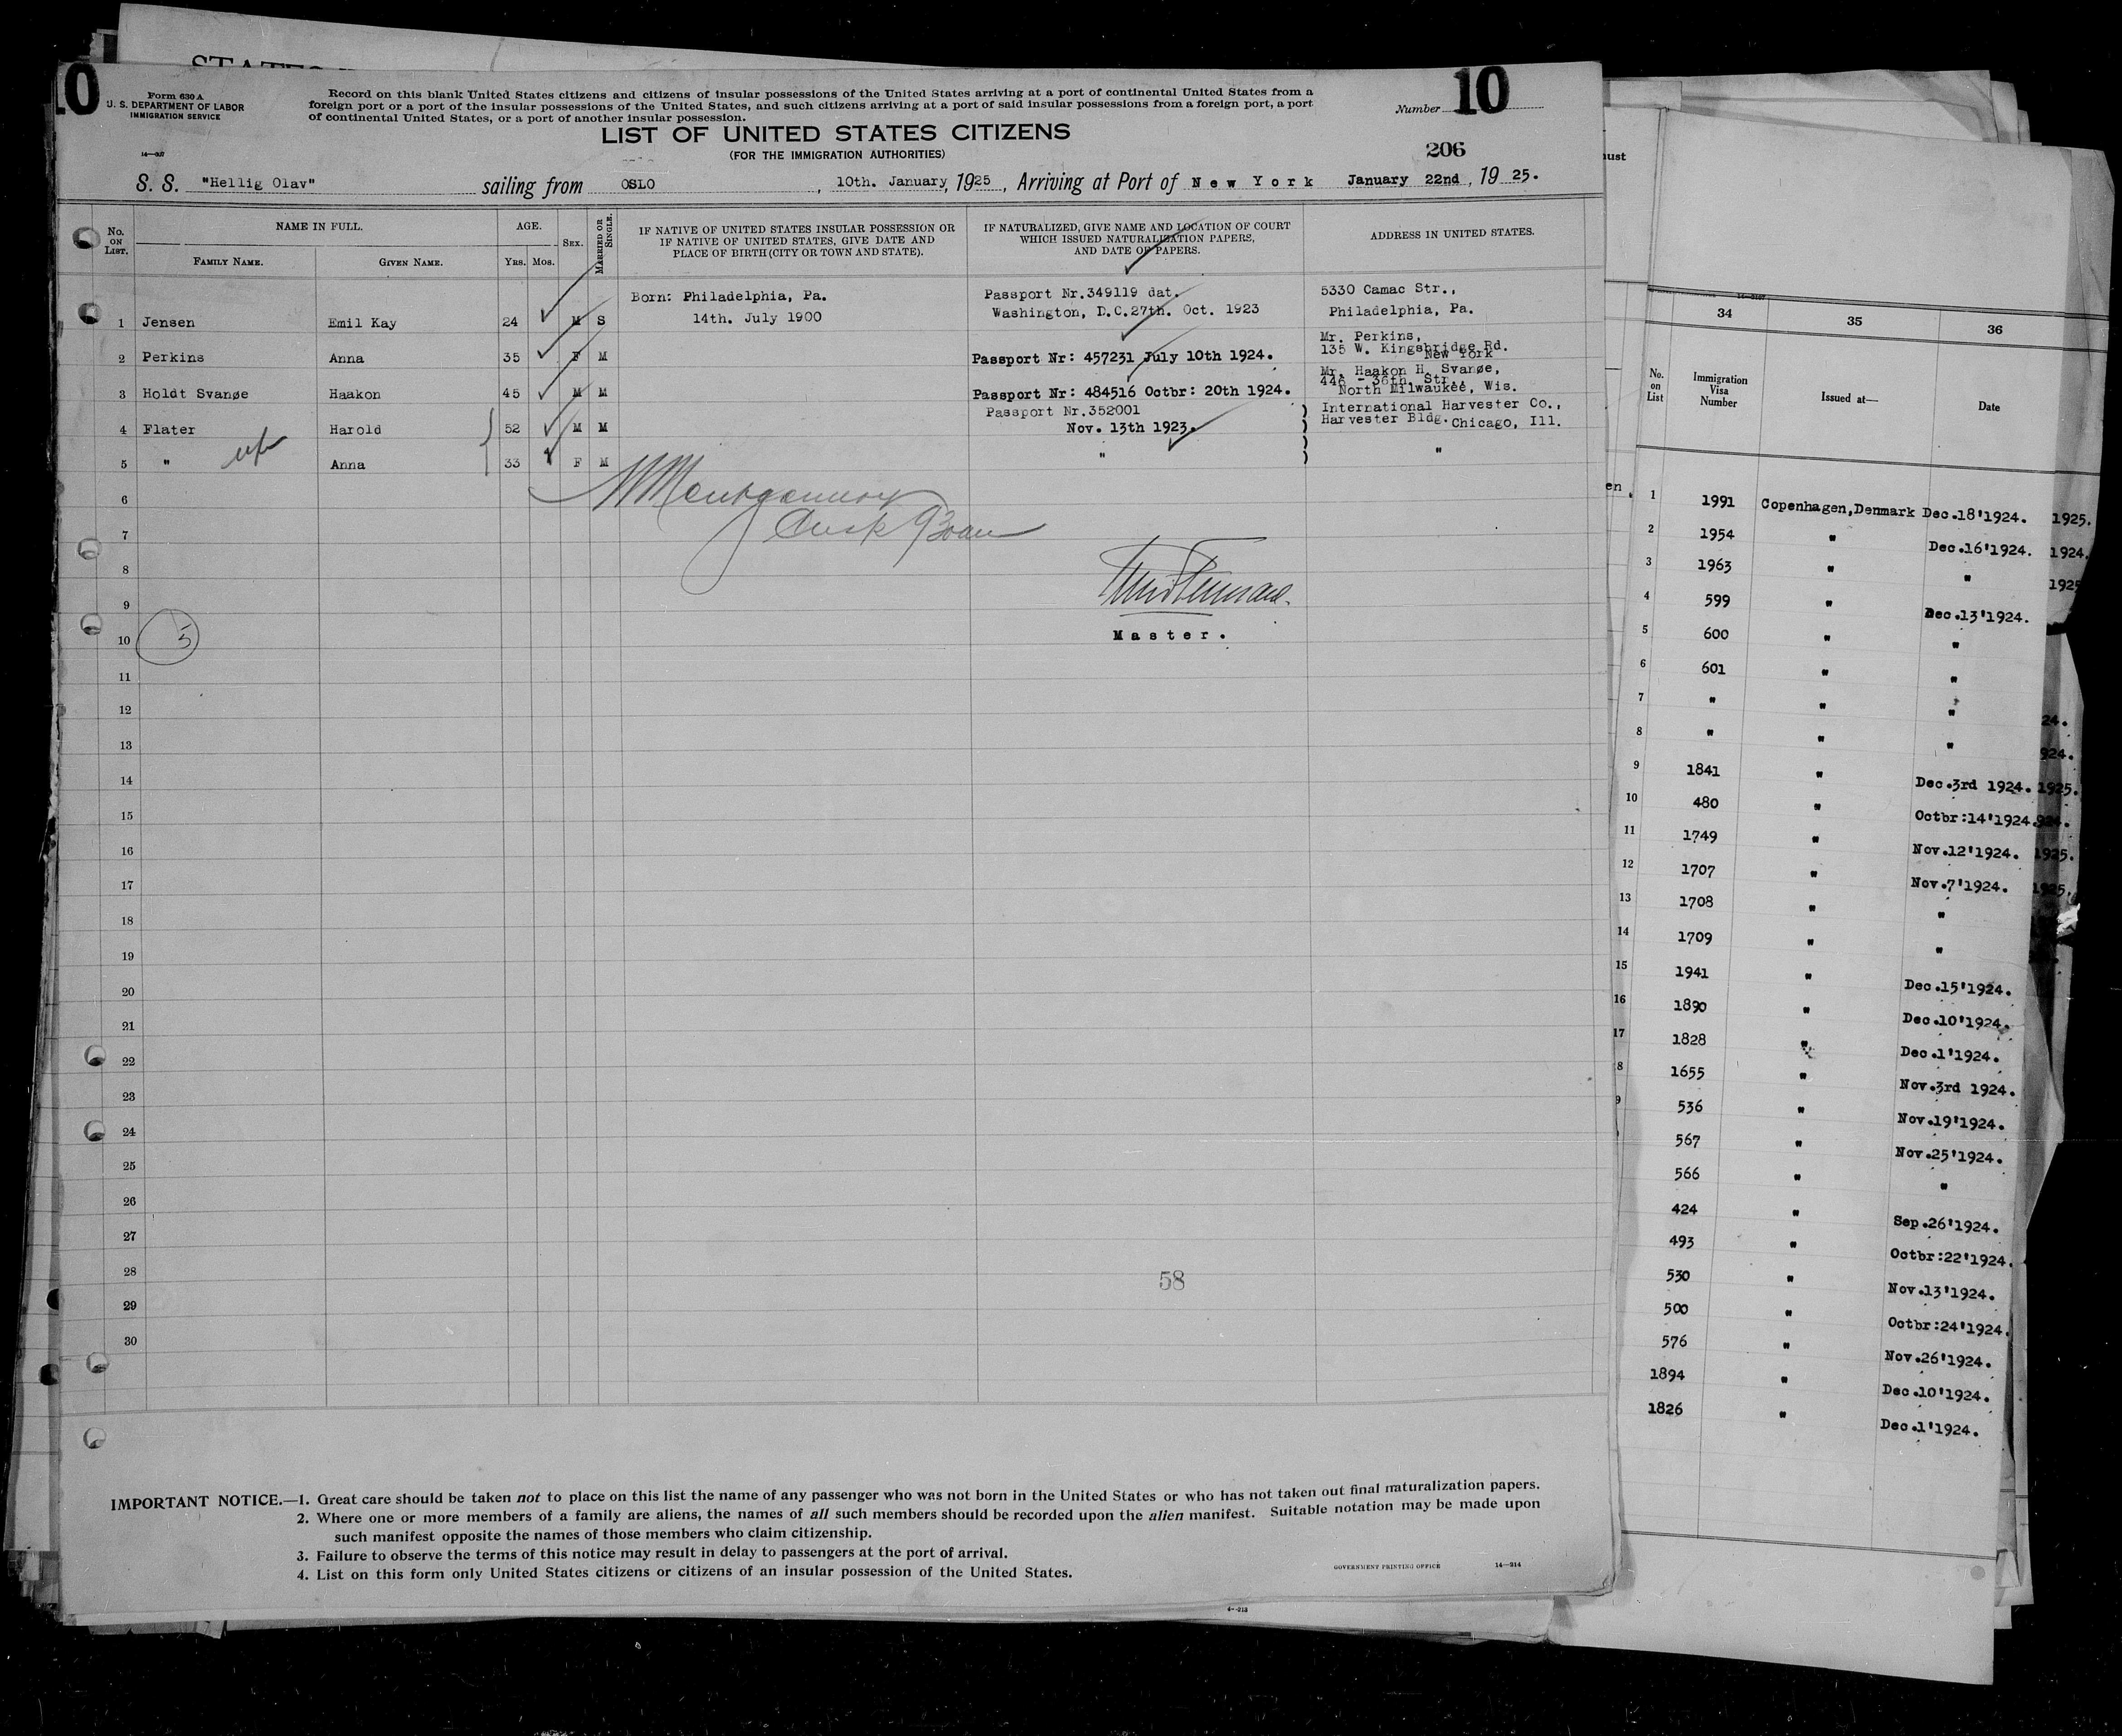 STATES
10
Form 630 A
U. S. DEPARTMENT OF LABOR
IMMIGRATION SERVICE
14—907
Record on this blank United States citizens and citizens of insular possessions of the United States arriving at a port of continental United States from a
foreign port or a port of the insular possessions of the United States, and such citizens arriving at a port of said insular possessions from a foreign port, a port
of continental United States, or a port of another insular possession.
Number 10
LIST OF UNITED STATES CITIZENS
(FOR THE IMMIGRATION AUTHORITIES)
206
S. S. "Hellig Olav" sailing from OSLO, 10th. January, 1925, Arriving at Port of New York January 22nd, 1925.
No. ON LIST.
NAME IN FULL.
FAMILY NAME.
GIVEN NAME.
AGE.
YRS. MOS.
SEX.
MARRIED OR SINGLE.
IF NATIVE OF UNITED STATES INSULAR POSSESSION OR
IF NATIVE OF UNITED STATES, GIVE DATE AND
PLACE OF BIRTH (CITY OR TOWN AND STATE).
IF NATURALIZED, GIVE NAME AND LOCATION OF COURT
WHICH ISSUED NATURALIZATION PAPERS,
AND DATE OF PAPERS.
ADDRESS IN UNITED STATES.
Born: Philadelphia, Pa. Passport Nr.349119 dat. 5330 Camac Str.,
1 Jensen Emil Kay 24 M S 14th. July 1900 Washington, D.C.27th. Oct. 1923 Philadelphia, Pa.
Mr. Perkins,
2 Perkins Anna 35 F M Passport Nr: 457231 July 10th 1924. 135 W. Kingsbridge Rd.
New York
Mr. Haakon H. Svanøe,
446 - 36th. Str.,
3 Holdt Svanøe Haakon 45 M M Passport Nr: 484516 Octbr: 20th 1924. North Milwaukee, Wis.
Passport Nr.352001 ) International Harvester Co.,
4 Flater Harold 52 M M Nov. 13th 1923. ) Harvester Bldg. Chicago, Ill.
5 " Anna 33 F M " ) "
6
7
8
9
10 5
Master.
11
12
13
14
15
16
17
18
19
20
21
22
23
24
25
26
27
28
58
29
30
IMPORTANT NOTICE.—1. Great care should be taken not to place on this list the name of any passenger who was not born in the United States or who has not taken out final naturalization papers.
2. Where one or more members of a family are aliens, the names of all such members should be recorded upon the alien manifest. Suitable notation may be made upon
such manifest opposite the names of those members who claim citizenship.
3. Failure to observe the terms of this notice may result in delay to passengers at the port of arrival.
4. List on this form only United States citizens or citizens of an insular possession of the United States.
GOVERNMENT PRINTING OFFICE 14—914
34 35 36
No. on List
Immigration Visa Number
Issued at—
Date
1 1991 Copenhagen,Denmark Dec.18'1924. 1925.
2 1954 " Dec.16'1924. 1924.
3 1963 " " 1925
4 599 " Dec.13'1924.
5 600 " "
6 601 " "
7 " " " 24.
8 " " " 924.
9 1841 " Dec.3rd 1924. 1925.
10 480 " Octbr:14'1924.
11 1749 " Nov.12'1924. 1925.
12 1707 " Nov.7'1924. 1925.
13 1708 " "
14 1709 " "
15 1941 " Dec.15'1924.
16 1890 " Dec.10'1924.
17 1828 " Dec.1'1924.
8 1655 " Nov.3rd 1924.
9 536 " Nov.19'1924.
567 " Nov.25'1924.
566 " "
424 " Sep.26'1924.
493 " Octbr:22'1924.
530 " Nov.13'1924.
500 " Octbr:24'1924.
576 " Nov.26'1924.
1894 " Dec.10'1924.
1826 " Dec.1'1924.